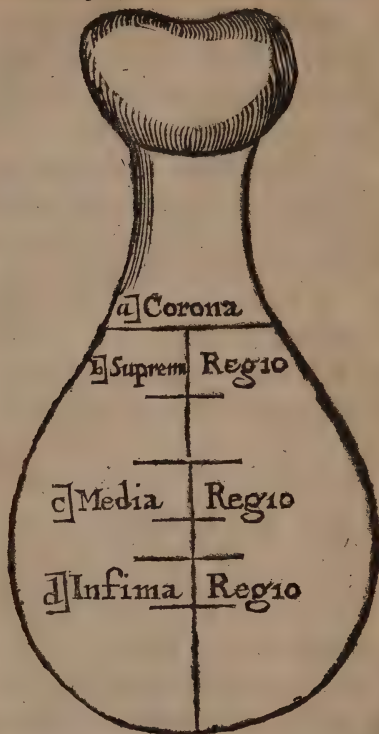 a] Corona
b] Suprem Regio
c] Media Regio
d] Infima Regio